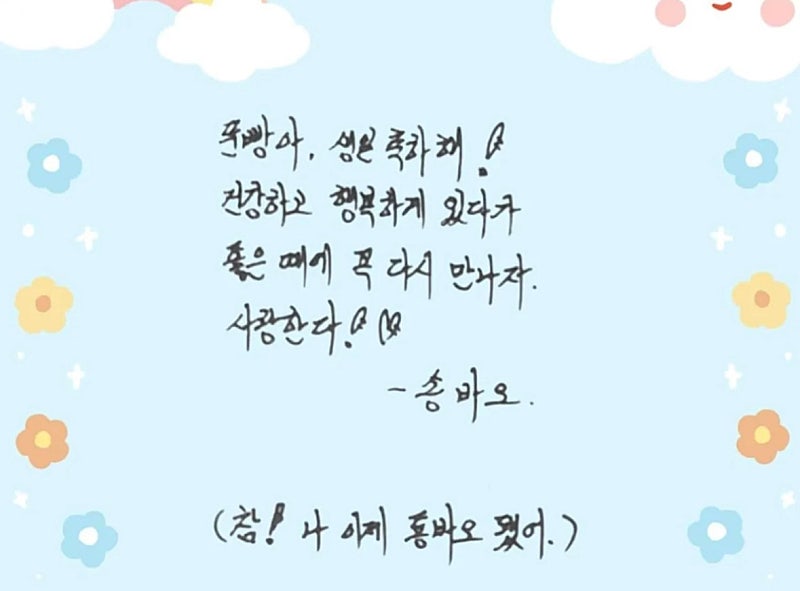 푼빵아, 생일 축하해!
건강하고 행복하게 있다가
좋은 때에 꼭 다시 만나자.
사랑한다! ♡
- 송바오.
(참! 나 이제 통바오 됐어.)